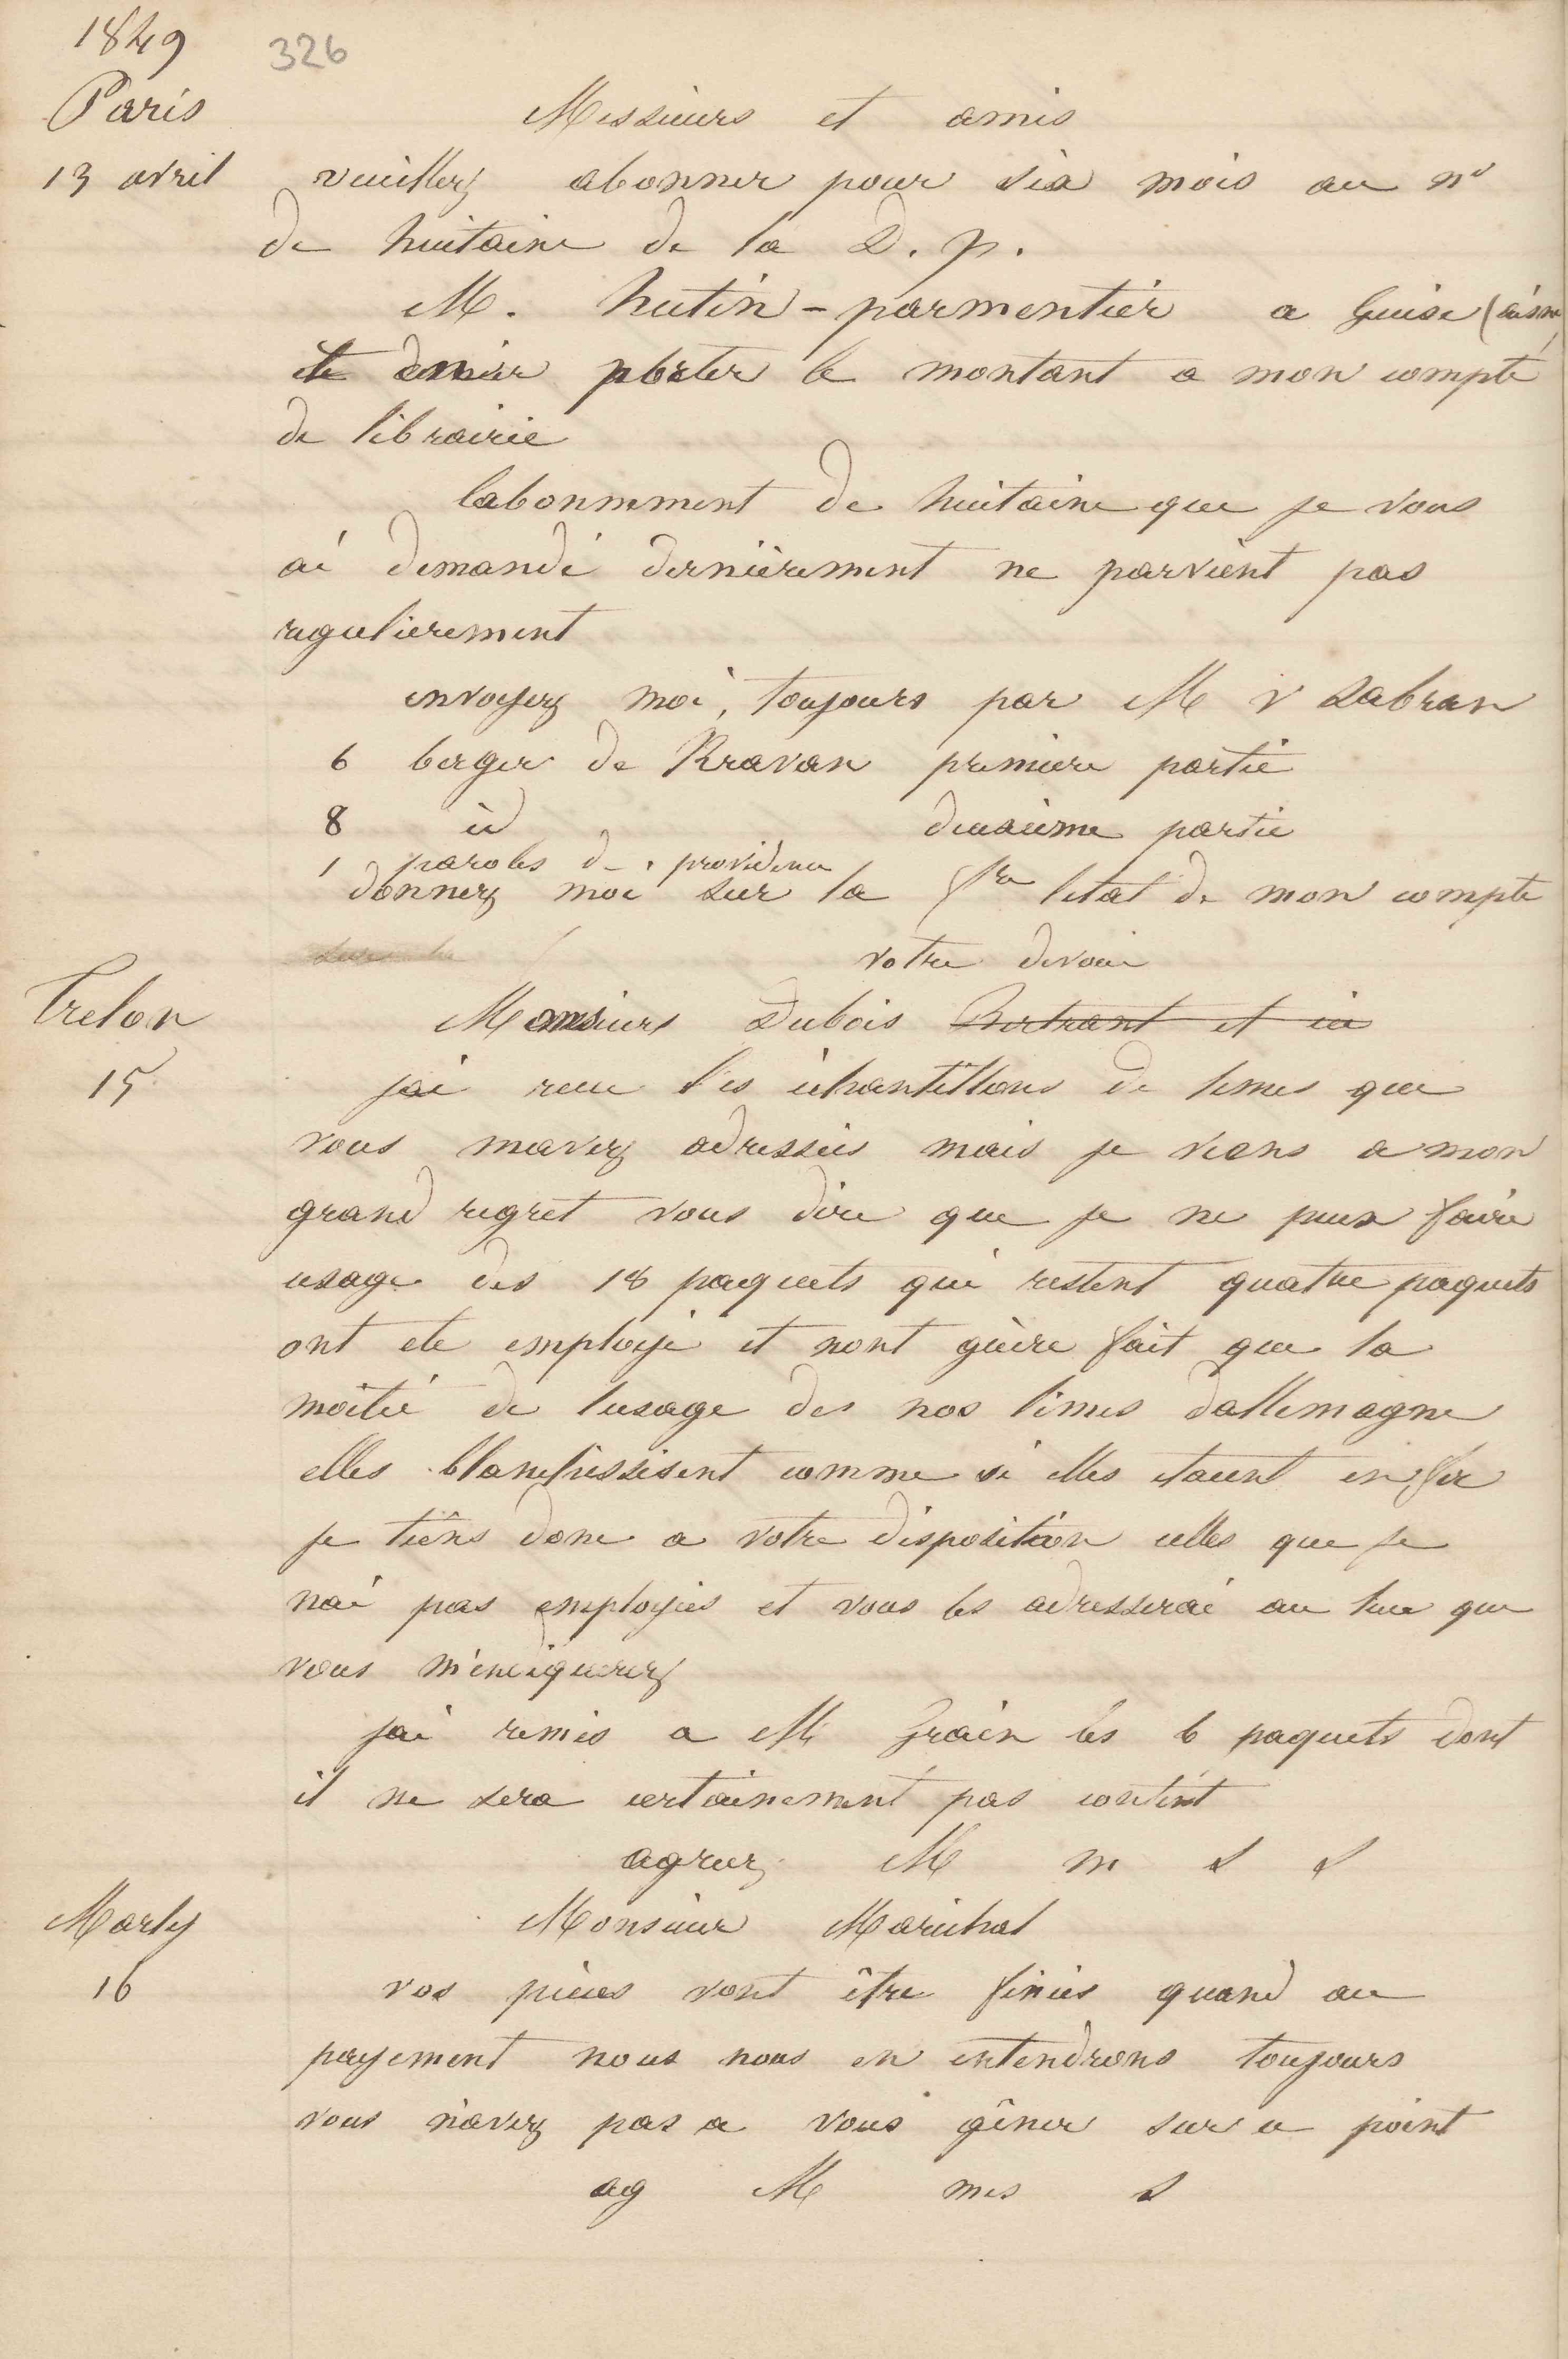 1849
326
Paris
Messieurs et amis
13 avril
veuillez abonner pour six mois au nº
de huitaine de la D. p.
M. hutin-parmentier a Guise (aisne
porter le montant a mon compte
de librairie
labonnement de huitaine que je vous
ai demandé dernièrement ne parvient pas
regulierement
envoyez moi, toujours par M v Labran
6 berger de Kravan premiere partie
8 id deuxième partie
1 paroles de providence
donnez moi sur la fre letat de mon compte
votre devoué
Trelon
Monsieur Dubois Bertrant et cie
15
jai recu les échantillons de limes que
vous mavez adressées mais je viens a mon
grand regret vous dire que je ne peux faire
usage des 18 paquets qui restent quatre paquets
ont ete employé et nont guère fait que la
moitié de lusage des nos limes dallemagne
elles blanchissisent comme si elles etaient en fer
je tiens donc a votre disposition celles que je
nai pas employées et vous les adresserai au lieu que
vous m'indiquerez
jai remis a M Grain les 6 paquets dont
il ne sera certainement pas content
agreez M m s s
Marly
Monsieur Marichal
16
vos pièces vont être finies quand au
payement nous nous en entendrons toujours
vous n'avez pas a vous gêner sur ce point
ag M mes s